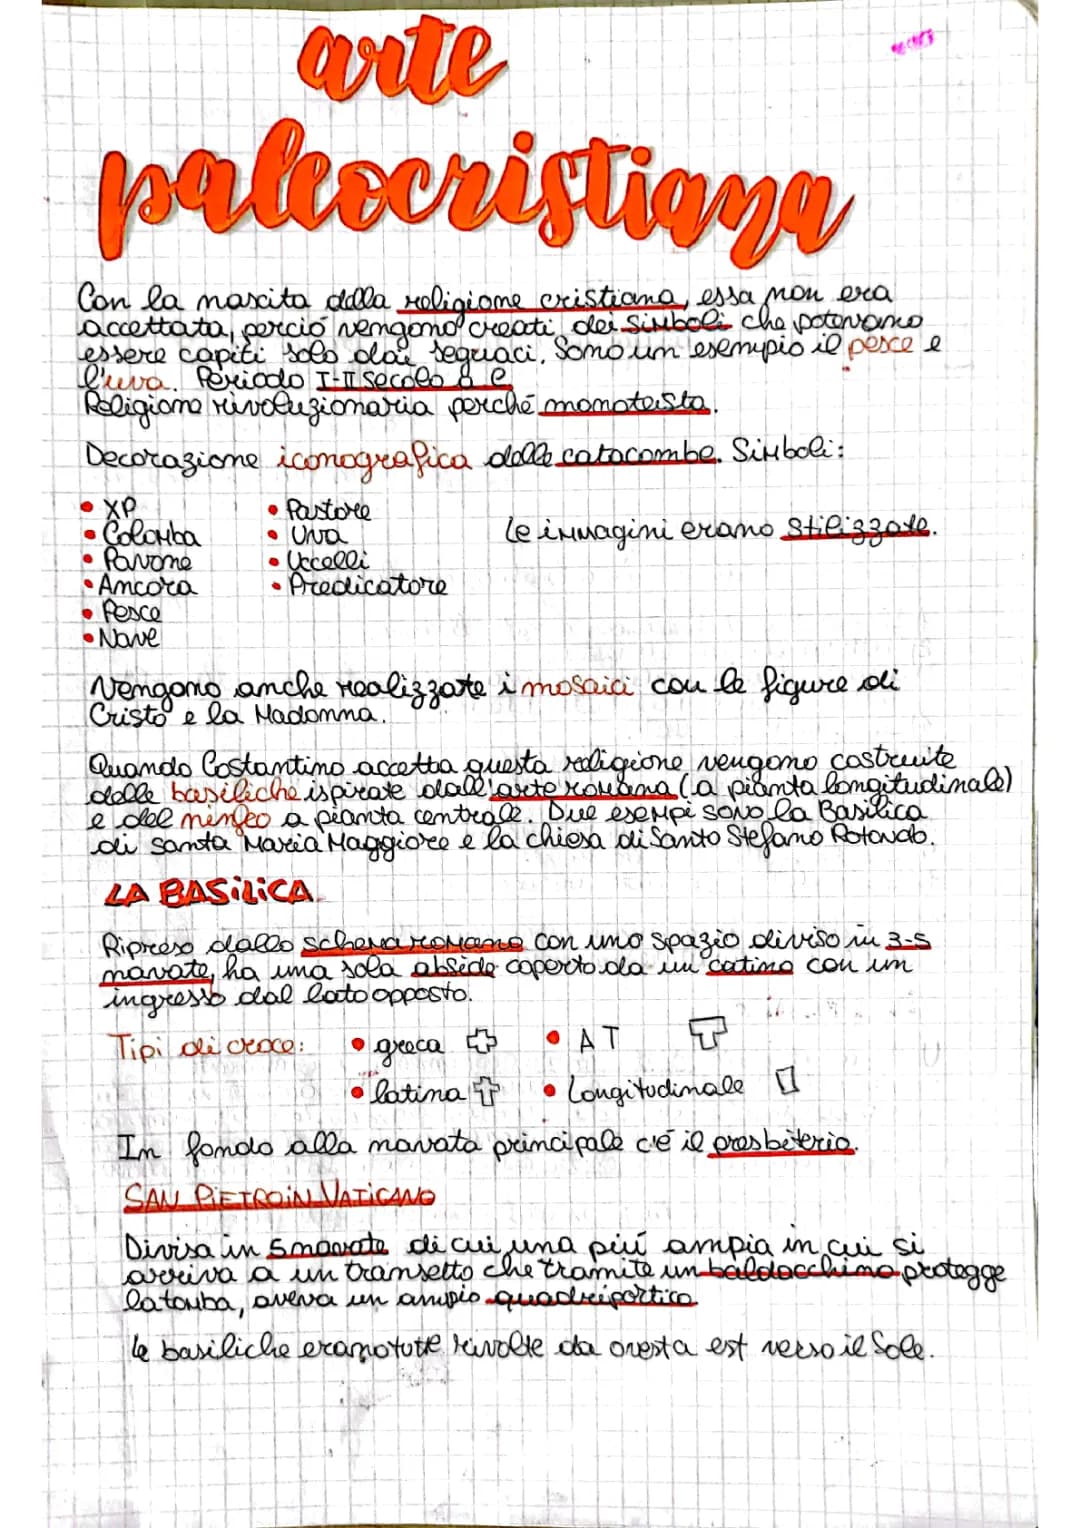 arte
paleocristiana
Con la nascita della religione cristiana, essa non era
accettata, perciò vengono creati dei simboli che potevano
essere capiti solo dai seguaci. Sono un esempio il pesce e
l'uva. Periodo I-II secolo d.C.
Religione rivoluzionaria perché monoteista.
Decorazione iconografica delle catacombe. Simboli:
• XP
• Colomba
• Pavone
• Ancora
• Pesce
• Nave
• Pastore
• Uva
• Uccelli
• Predicatore
Le immagini erano stilizzate.
Vengono anche realizzate i mosaici con le figure di
Cristo e la Madonna.
Quando Costantino accetta questa religione vengono costruite
delle basiliche ispirate dall'arte romana (a pianta longitudinale)
e del ninfeo a pianta centrale. Due esempi sono la Basilica
di Santa Maria Maggiore e la chiesa di Santo Stefano Rotondo.
LA BASILICA
Ripreso dallo schema romano con uno spazio diviso in 3-5
navate, ha una sola abside coperto da un catino con un
ingresso dal lato opposto.
Tipi di croce: • greca • A T
• latina • Longitudinale
In fondo alla navata principale c'é il presbiterio.
SAN PIETRO IN VATICANO
Divisa in 5 navate di cui una piú ampia in cui si
arriva a un transetto che tramite un baldacchino protegge
la tomba, aveva un ampio quadriportico
Le basiliche erano tutte rivolte da ovest a est verso il Sole.